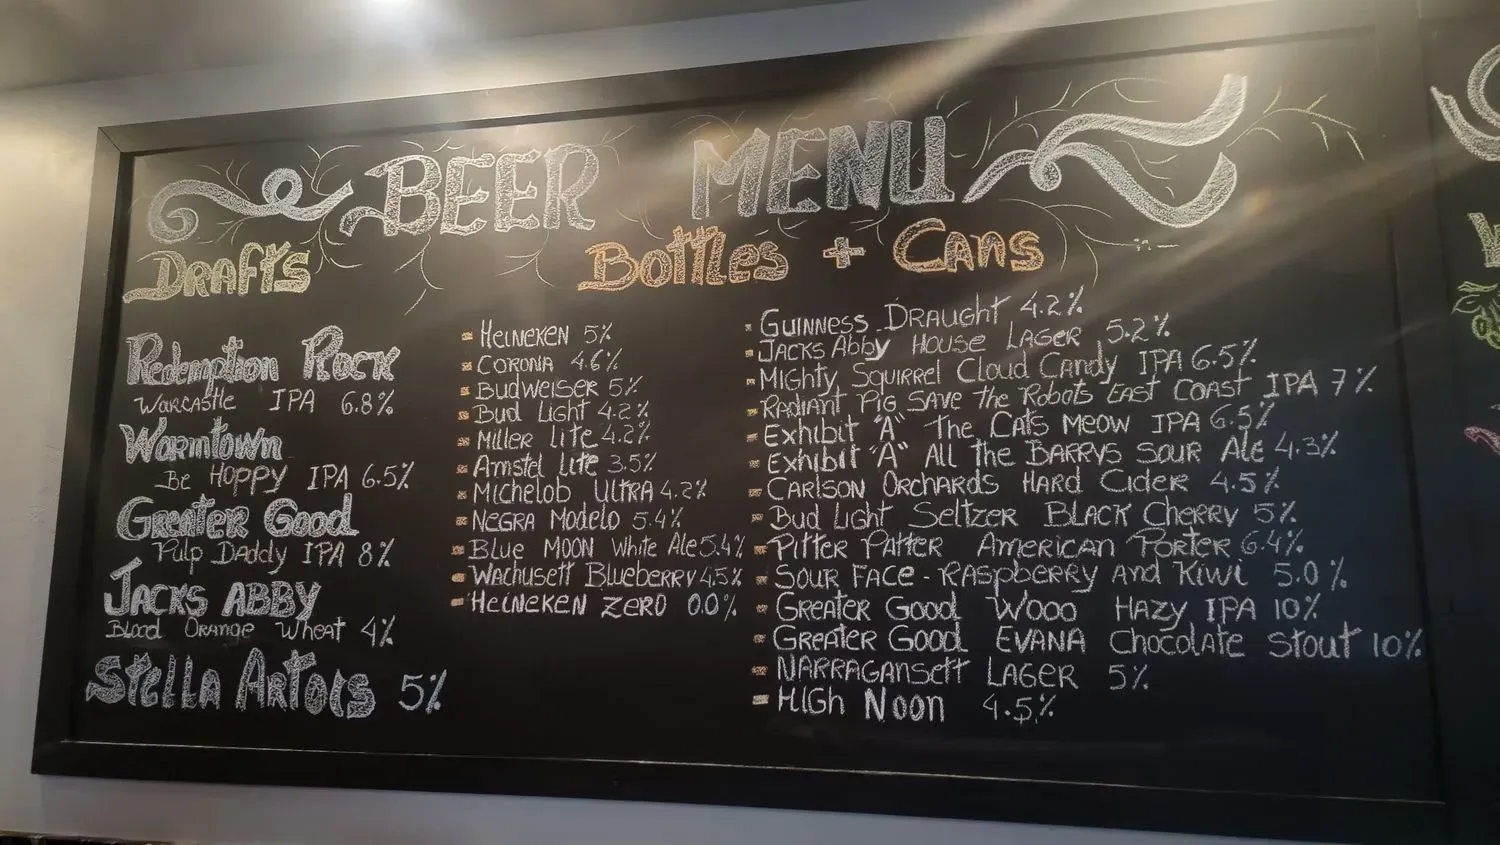 BEER MENU
DRAFTS
Redemption Rock
Warcastle IPA 6.8%
Wormtown
Be Hoppy IPA 6.5%
Greater Good
Pulp Daddy IPA 8%
JACKS ABBY
Blood Orange Wheat 4%
Stella Artois 5%
Bottles + Cans
Heineken 5%
Corona 4.6%
Budweiser 5%
Bud Light 4.2%
Miller Lite 4.2%
Amstel Lite 3.5%
Michelob ULTRA 4.2%
Negra Modelo 5.4%
Blue MOON White Ale 5.4%
Wachusett Blueberry 4.5%
Heineken Zero 0.0%
Guinness Draught 4.2%
Jacks Abby House Lager 5.2%
Mighty Squirrel Cloud Candy IPA 6.5%
Radiant Pig Save the Robots East Coast IPA 7%
Exhibit "A" The Cats Meow IPA 6.5%
Exhibit "A" All the Barrys Sour Ale 4.3%
Carlson Orchards Hard Cider 4.5%
Bud Light Seltzer Black Cherry 5%
Pitter Patter American Porter 6.4%
Sour Face - Raspberry and Kiwi 5.0%
Greater Good Wooo Hazy IPA 10%
Greater Good EVANA Chocolate Stout 10%
Narragansett Lager 5%
High Noon 4.5%